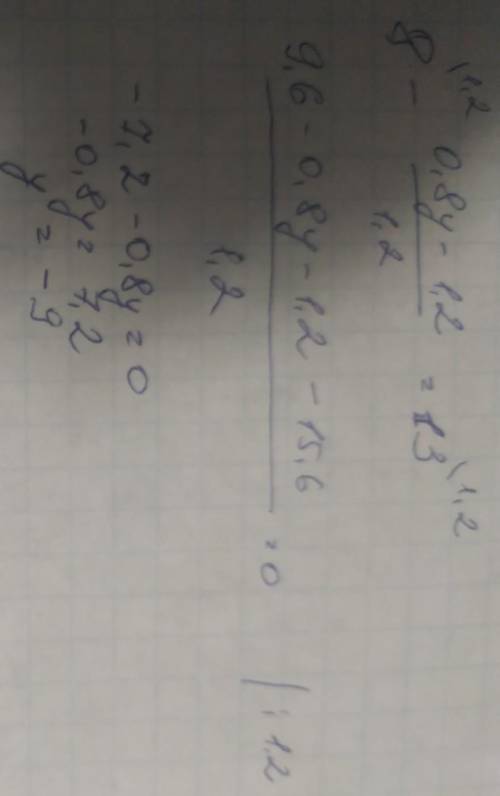 8 \1,2 - (0,8y - 1,2)/1,2 = 13 \1,2
(9,6 - 0,8y - 1,2 - 15,6)/1,2 = 0 | : 1,2
-7,2 - 0,8y = 0
-0,8y = 7,2
y = -9